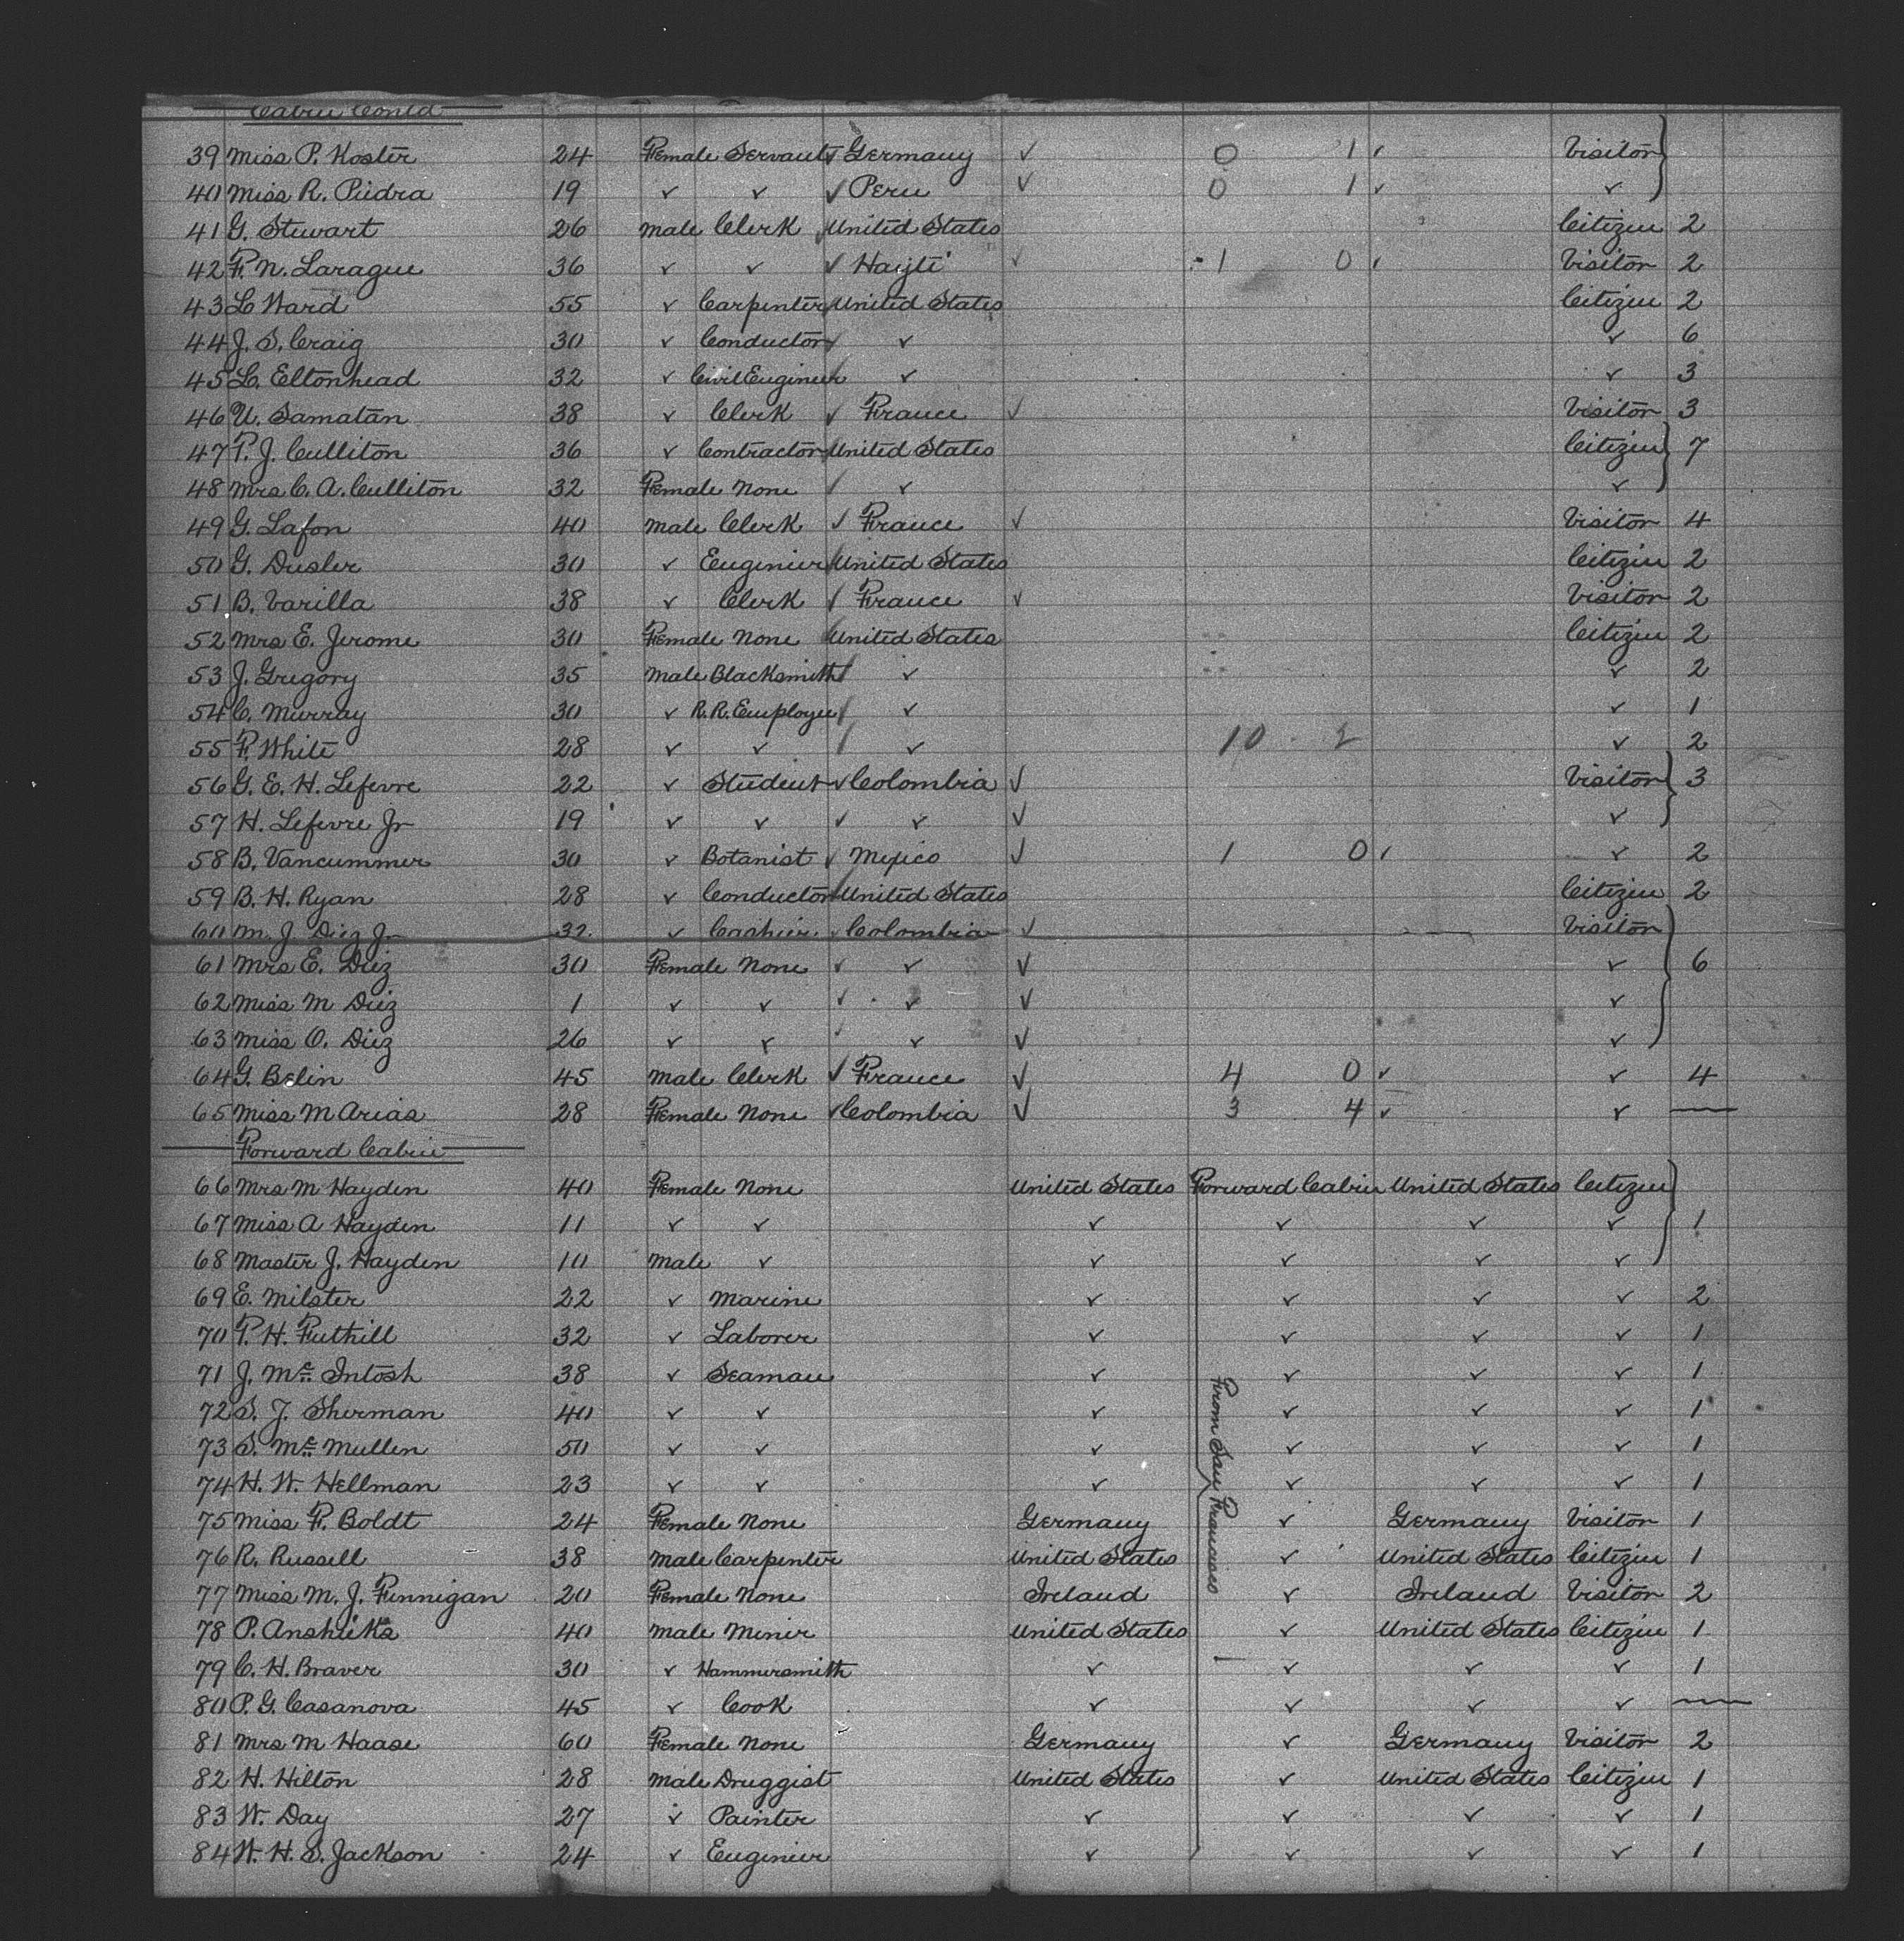 Cabin Contd
39 Miss P. Koster 24 Female Servant ✓ Germany ✓ 0 1 ✓ Visitor
40 Miss R. Piedra 19 ✓ ✓ ✓ Peru ✓ 0 1 ✓ ✓
41 G. Stewart 26 Male Clerk ✓ United States Citizen 2
42 F. N. Laraque 36 ✓ ✓ ✓ Hayti ✓ 1 0 ✓ Visitor 2
43 L Ward 55 ✓ Carpenter United States Citizen 2
44 J. S. Craig 30 ✓ Conductor ✓ ✓ ✓ 6
45 L. Eltonhead 32 ✓ Civil Engineer ✓ ✓ 3
46 U. Samatan 38 ✓ Clerk ✓ France ✓ Visitor 3
47 P. J. Culliton 36 ✓ Contractor United States Citizen 7
48 Mrs C. A. Culliton 32 Female None ✓ ✓ ✓
49 G. Lafon 40 Male Clerk ✓ France ✓ Visitor 4
50 G. Dusler 30 ✓ Engineer United States Citizen 2
51 B. Varilla 38 ✓ Clerk ✓ France ✓ Visitor 2
52 Mrs E. Jerome 30 Female None ✓ United States Citizen 2
53 J. Gregory 35 Male Blacksmith ✓ ✓ ✓ 2
54 C. Murray 30 ✓ R.R. Employee ✓ ✓ ✓ 1
55 F. White 28 ✓ ✓ ✓ ✓ 10 2 ✓ 2
56 G. E. H. Lefevre 22 ✓ Student ✓ Colombia ✓ Visitor 3
57 H. Lefevre Jr 19 ✓ ✓ ✓ ✓ ✓ ✓
58 B. Vancummer 30 ✓ Botanist ✓ Mexico ✓ 1 0 ✓ ✓ 2
59 B. H. Ryan 28 ✓ Conductor United States Citizen 2
60 M. J. Diez Jr 32 ✓ Cashier ✓ Colombia ✓ Visitor
61 Mrs E. Diez 30 Female None ✓ ✓ ✓ ✓ 6
62 Miss M Diez 1 ✓ ✓ ✓ ✓ ✓ ✓
63 Miss O. Diez 26 ✓ ✓ ✓ ✓ ✓ ✓
64 G. Belin 45 Male Clerk ✓ France ✓ 4 0 ✓ ✓ 4
65 Miss M Arias 28 Female None ✓ Colombia ✓ 3 4 ✓ ✓ —
Forward Cabin
66 Mrs M Hayden 40 Female None United States Forward Cabin United States Citizen
67 Miss A Hayden 11 ✓ ✓ ✓ ✓ ✓ ✓ 1
68 Master J. Hayden 10 Male ✓ ✓ ✓ ✓ ✓
69 E. Milster 22 ✓ Marine ✓ ✓ ✓ ✓ 2
70 P. H. Futhill 32 ✓ Laborer ✓ ✓ ✓ ✓ 1
71 J. Mc Intosh 38 ✓ Seaman ✓ ✓ ✓ ✓ 1
72 S. J. Sherman 40 ✓ ✓ ✓ ✓ ✓ ✓ 1
73 S. Mc Mullen 50 ✓ ✓ ✓ ✓ ✓ ✓ 1
74 H. W. Hellman 23 ✓ ✓ ✓ ✓ ✓ ✓ 1
75 Miss F. Boldt 24 Female None Germany ✓ Germany Visitor 1
76 R. Russell 38 Male Carpenter United States ✓ United States Citizen 1
77 Miss M. J. Finnigan 20 Female None Ireland ✓ Ireland Visitor 2
78 P. Anshuks 40 Male Miner United States ✓ United States Citizen 1
79 C. H. Braver 30 ✓ Hammersmith ✓ ✓ ✓ ✓ 1
80 P. G. Casanova 45 ✓ Cook ✓ ✓ ✓ ✓ —
81 Mrs M Haase 60 Female None Germany ✓ Germany Visitor 2
82 H. Hilton 28 Male Druggist United States ✓ United States Citizen 1
83 W. Day 27 ✓ Painter ✓ ✓ ✓ ✓ 1
84 W. H. S. Jackson 24 ✓ Engineer ✓ ✓ ✓ ✓ 1
From San Francisco